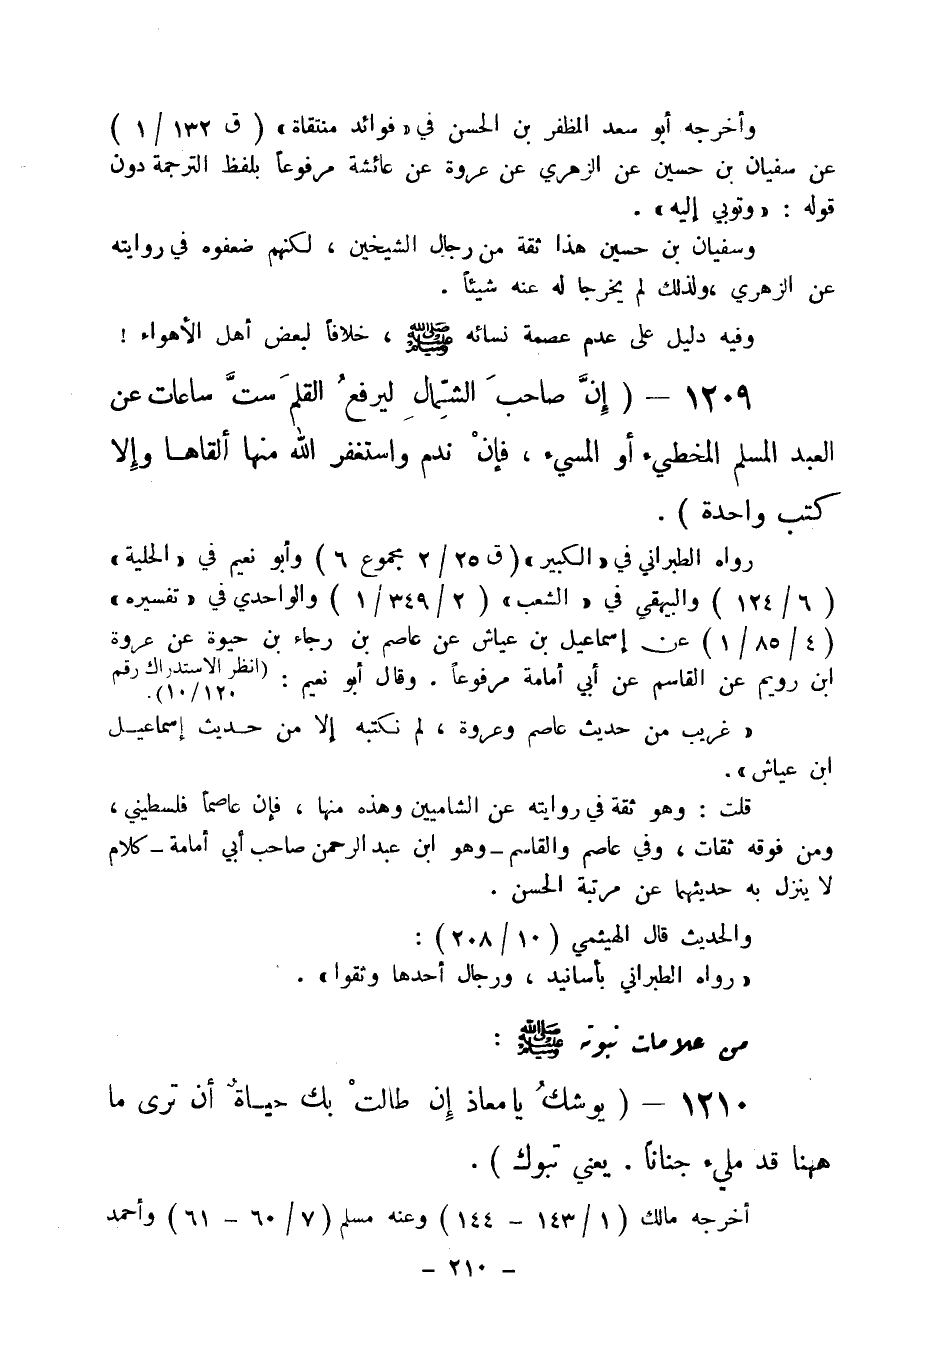 وأخرجه أبو سعد المظفر بن الحسن في « فوائد منتقاة » ( ق ١٣٢ / ١ )
عن سفيان بن حسين عن الزهري عن عروة عن عائشة مرفوعاً بلفظ الترجمة دون
قوله : « وتوبي إليه » .
وسفيان بن حسين هذا ثقة من رجال الشيخين ، لكنهم ضعفوه في روايته
عن الزهري ،ولذلك لم يخرجا له عنه شيئاً .
وفيه دليل على عدم عصمة نسائه ﷺ ، خلافاً لبعض أهل الأهواء !
١٢٠٩ – ( إنَّ صاحبَ الشِّمالِ ليرفعُ القلمَ ستَّ ساعات عن
العبد المسلم المخطيء أو المسيء ، فإنْ ندم واستغفر الله منها ألقاها وإلا
كتب واحدة ) .
رواه الطبراني في « الكبير » ( ق ٢٥ / ٢ مجموع ٦ ) وأبو نعيم في « الحلية »
( ٦ / ١٢٤ ) والبيهقي في « الشعب » ( ٢ / ٣٤٩ / ١ ) والواحدي في « تفسيره »
( ٤ / ٨٥ / ١ ) عن إسماعيل بن عياش عن عاصم بن رجاء بن حيوة عن عروة
ابن رويم عن القاسم عن أبي أمامة مرفوعاً . وقال أبو نعيم : (انظر الاستدراك رقم
١٠/١٢٠).
« غريب من حديث عاصم وعروة ، لم نكتبه إلا من حديث إسماعيل
ابن عياش » .
قلت : وهو ثقة في روايته عن الشاميين وهذه منها ، فإن عاصماً فلسطيني ،
ومن فوقه ثقات ، وفي عاصم والقاسم – وهو ابن عبد الرحمن صاحب أبي أمامة – كلام
لا ينزل به حديثهما عن مرتبة الحسن .
والحديث قال الهيثمي ( ١٠ / ٢٠٨ ) :
« رواه الطبراني بأسانيد ، ورجال أحدها وثقوا » .
من علامات نبوته ﷺ :
١٢١٠ – ( يوشكُ يا معاذ إن طالتْ بك حياةٌ أن ترى ما
ههنا قد مليء جناناً . يعني تبوك ) .
أخرجه مالك ( ١ / ١٤٣ – ١٤٤ ) وعنه مسلم ( ٧ / ٦٠ – ٦١ ) وأحمد
– ٢١٠ –